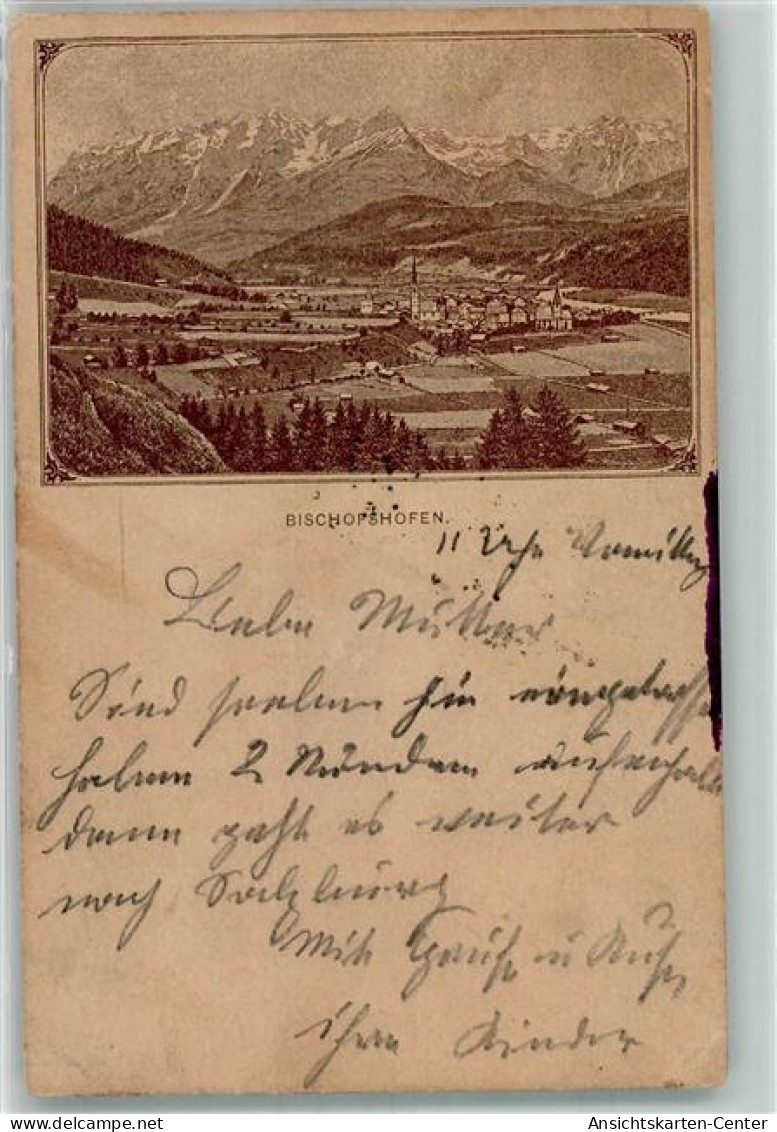 BISCHOFSHOFEN.
11 Uhr Vormittag
Liebe Mutter
Sind soeben hir eingetroffen
haben 2 Stunden aufenthalt
dann geht es weiter
nach Salzburg
Mit Gruß u Kuß
ihre Kinder
delcampe.net
Ansichtskarten-Center